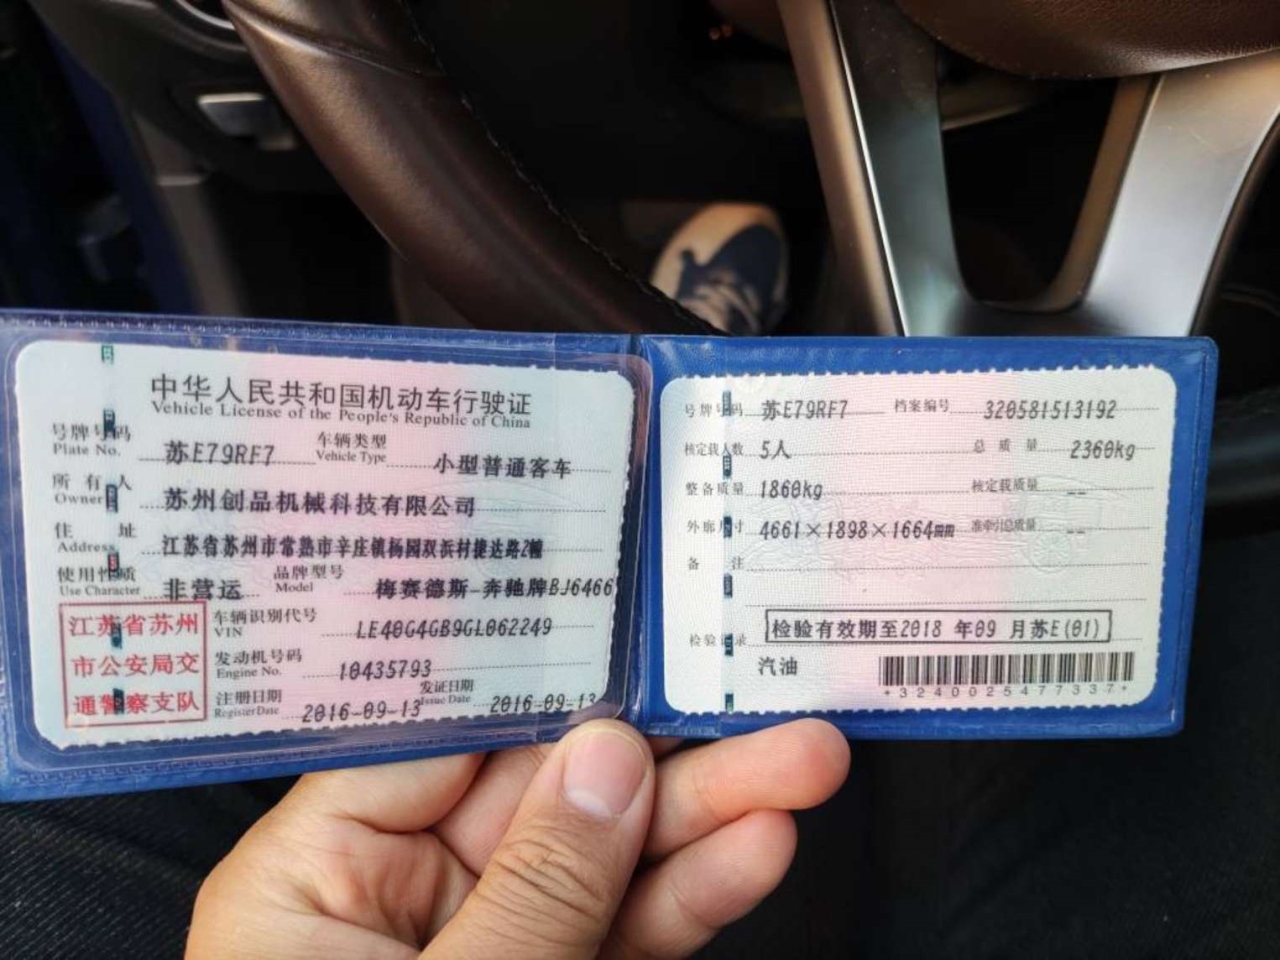 中华人民共和国机动车行驶证
Vehicle License of the People's Republic of China
号牌号码 苏E79RF7 车辆类型 小型普通客车
Plate No. Vehicle Type
所有人 苏州创品机械科技有限公司
Owner
住址 江苏省苏州市常熟市辛庄镇杨园双浜村捷达路2幢
Address
使用性质 非营运 品牌型号 梅赛德斯-奔驰牌BJ6466
Use Character Model
江苏省苏州
市公安局交
通警察支队
车辆识别代号 LE40G4GB9GL062249
VIN
发动机号码 10435793
Engine No.
注册日期 2016-09-13 发证日期 2016-09-13
Register Date Issue Date
号牌号码 苏E79RF7 档案编号 320581513192
核定载人数 5人 总质量 2360kg
整备质量 1860kg 核定载质量 --
外廓尺寸 4661×1898×1664mm 准牵引总质量 --
备注
检验记录 检验有效期至2018 年09 月苏E(01)
汽油
+3240025477337+